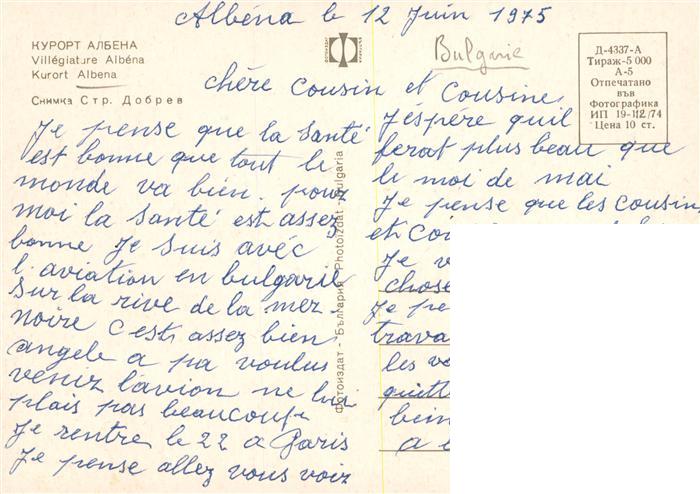 Albéna le 12 Juin 1975
КУРОРТ АЛБЕНА
Villégiature Albéna
Kurort Albena
Снимка Стр. Добрев
ФОТОИЗДАТ
Bulgarie
Д-4337-А
Тираж-5 000
А-5
Отпечатано
във
Фотографика
ИП 19-112/74
Цена 10 ст.
chère cousin et cousine,
Je pense que la santé
est bonne que tout le
monde va bien. pour
moi la santé est assez
bonne Je suis avec
l'aviation en bulgarie
sur la rive de la mer
noire c'est assez bien
angele a pa voulus
venir l'avion ne lui
plais pas beaucoup
Je rentre le 22 a Paris
Je pense allez vous voir
Фотоиздат - България - Photoizdat - Bulgaria
J'éspére quil
ferat plus beau que
le moi de mai
Je pense que les cousin
et
Je
chose
Je
trava
les
quitt
bein
a